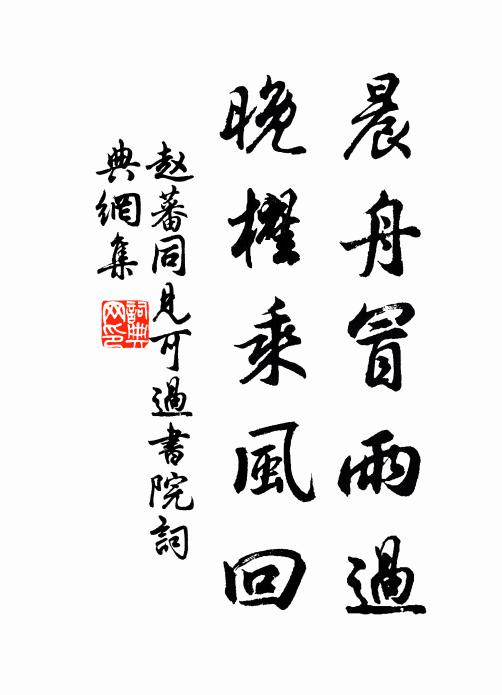 晨舟冒雨過
晚櫂乘風回
赵蕃同見可過書院詞
典網集
詞典网印